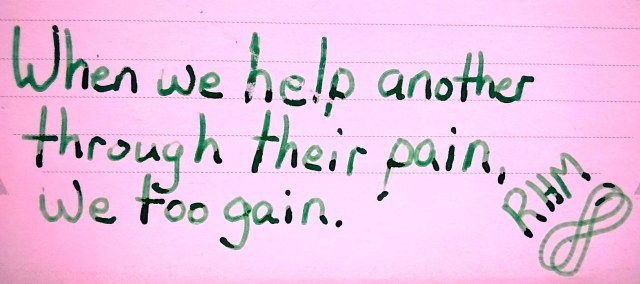 When we help another
through their pain,
we too gain.
RHM